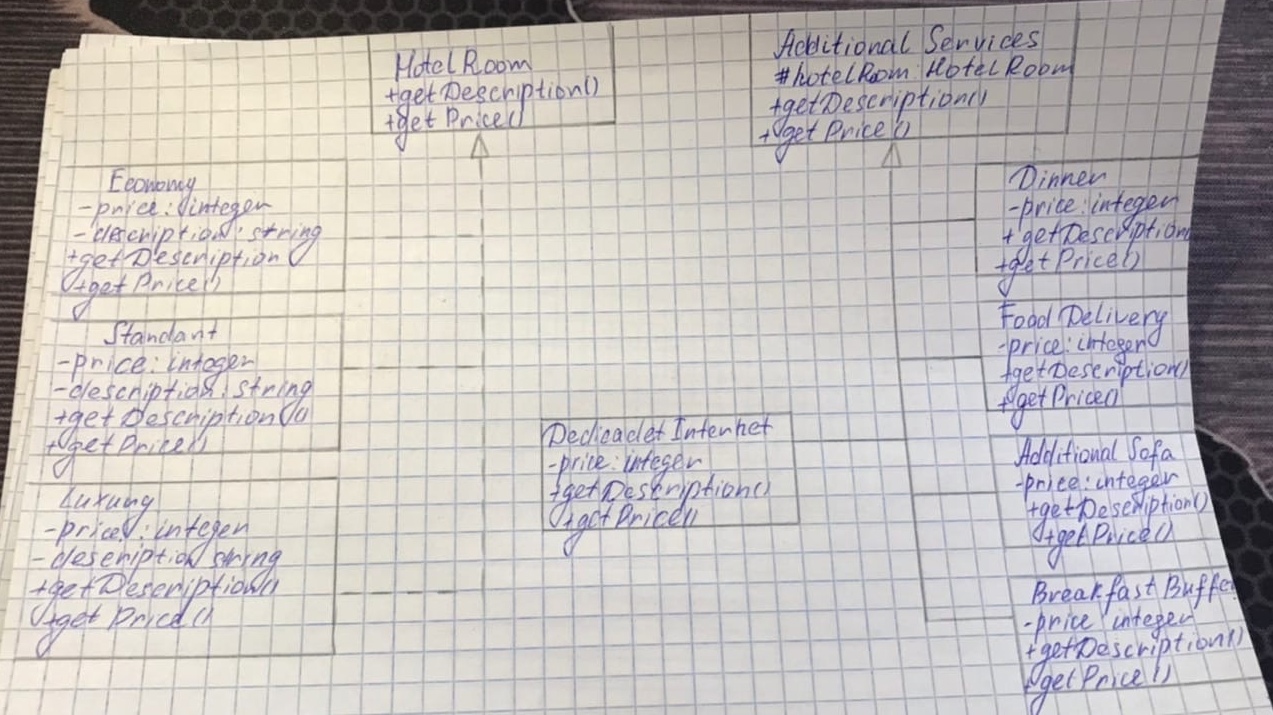 Hotel Room
+getDescription()
+get Price()
Additional Services
#hotelRoom: Hotel Room
+getDescription()
+get Price()
Economy
-price: integer
-description: string
+getDescription()
+get Price()
Standant
-price: integer
-description: string
+getDescription()
+getPrice()
Luxury
-price: integer
-description string
+getDescription()
+get Price()
Dedicadet Internet
-price: integer
+getDescription()
+getPrice()
Dinner
-price: integer
+getDescription
+getPrice()
Food Delivery
-price: integer
+getDescription()
+getPrice()
Additional Sofa
-price: integer
+getDescription()
+getPrice()
Breakfast Buffe
-price integer
+getDescription()
+getPrice()